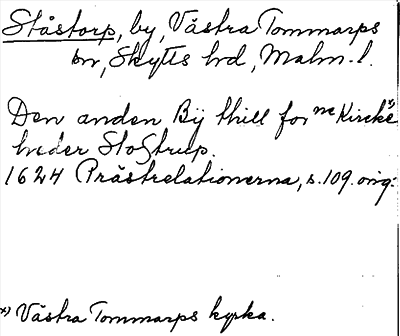 Ståstorp, by, Västra Tommarps
sn, Skytts hd, Malm. l.
Den anden Bÿ thill for ne Kircke x)
heder Stostrup.
1624 Prästrelationerna, s. 109. orig:
x) Västra Tommarps kyrka.